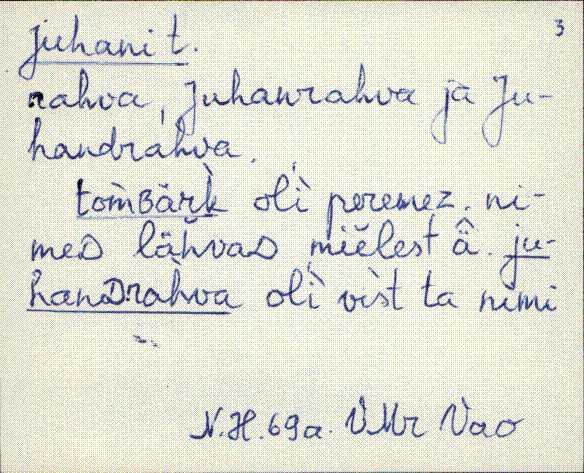 juhani t. 3
rahva, Juhanrahva ja Ju-
handrahva.
tom̀ʙärk̀ olì peremez. ni-
meᴅ lähvaᴅ mièlest â. ju-
hanᴅràhva olì vìst ta nimi
N.H. 69a. VMr Vao